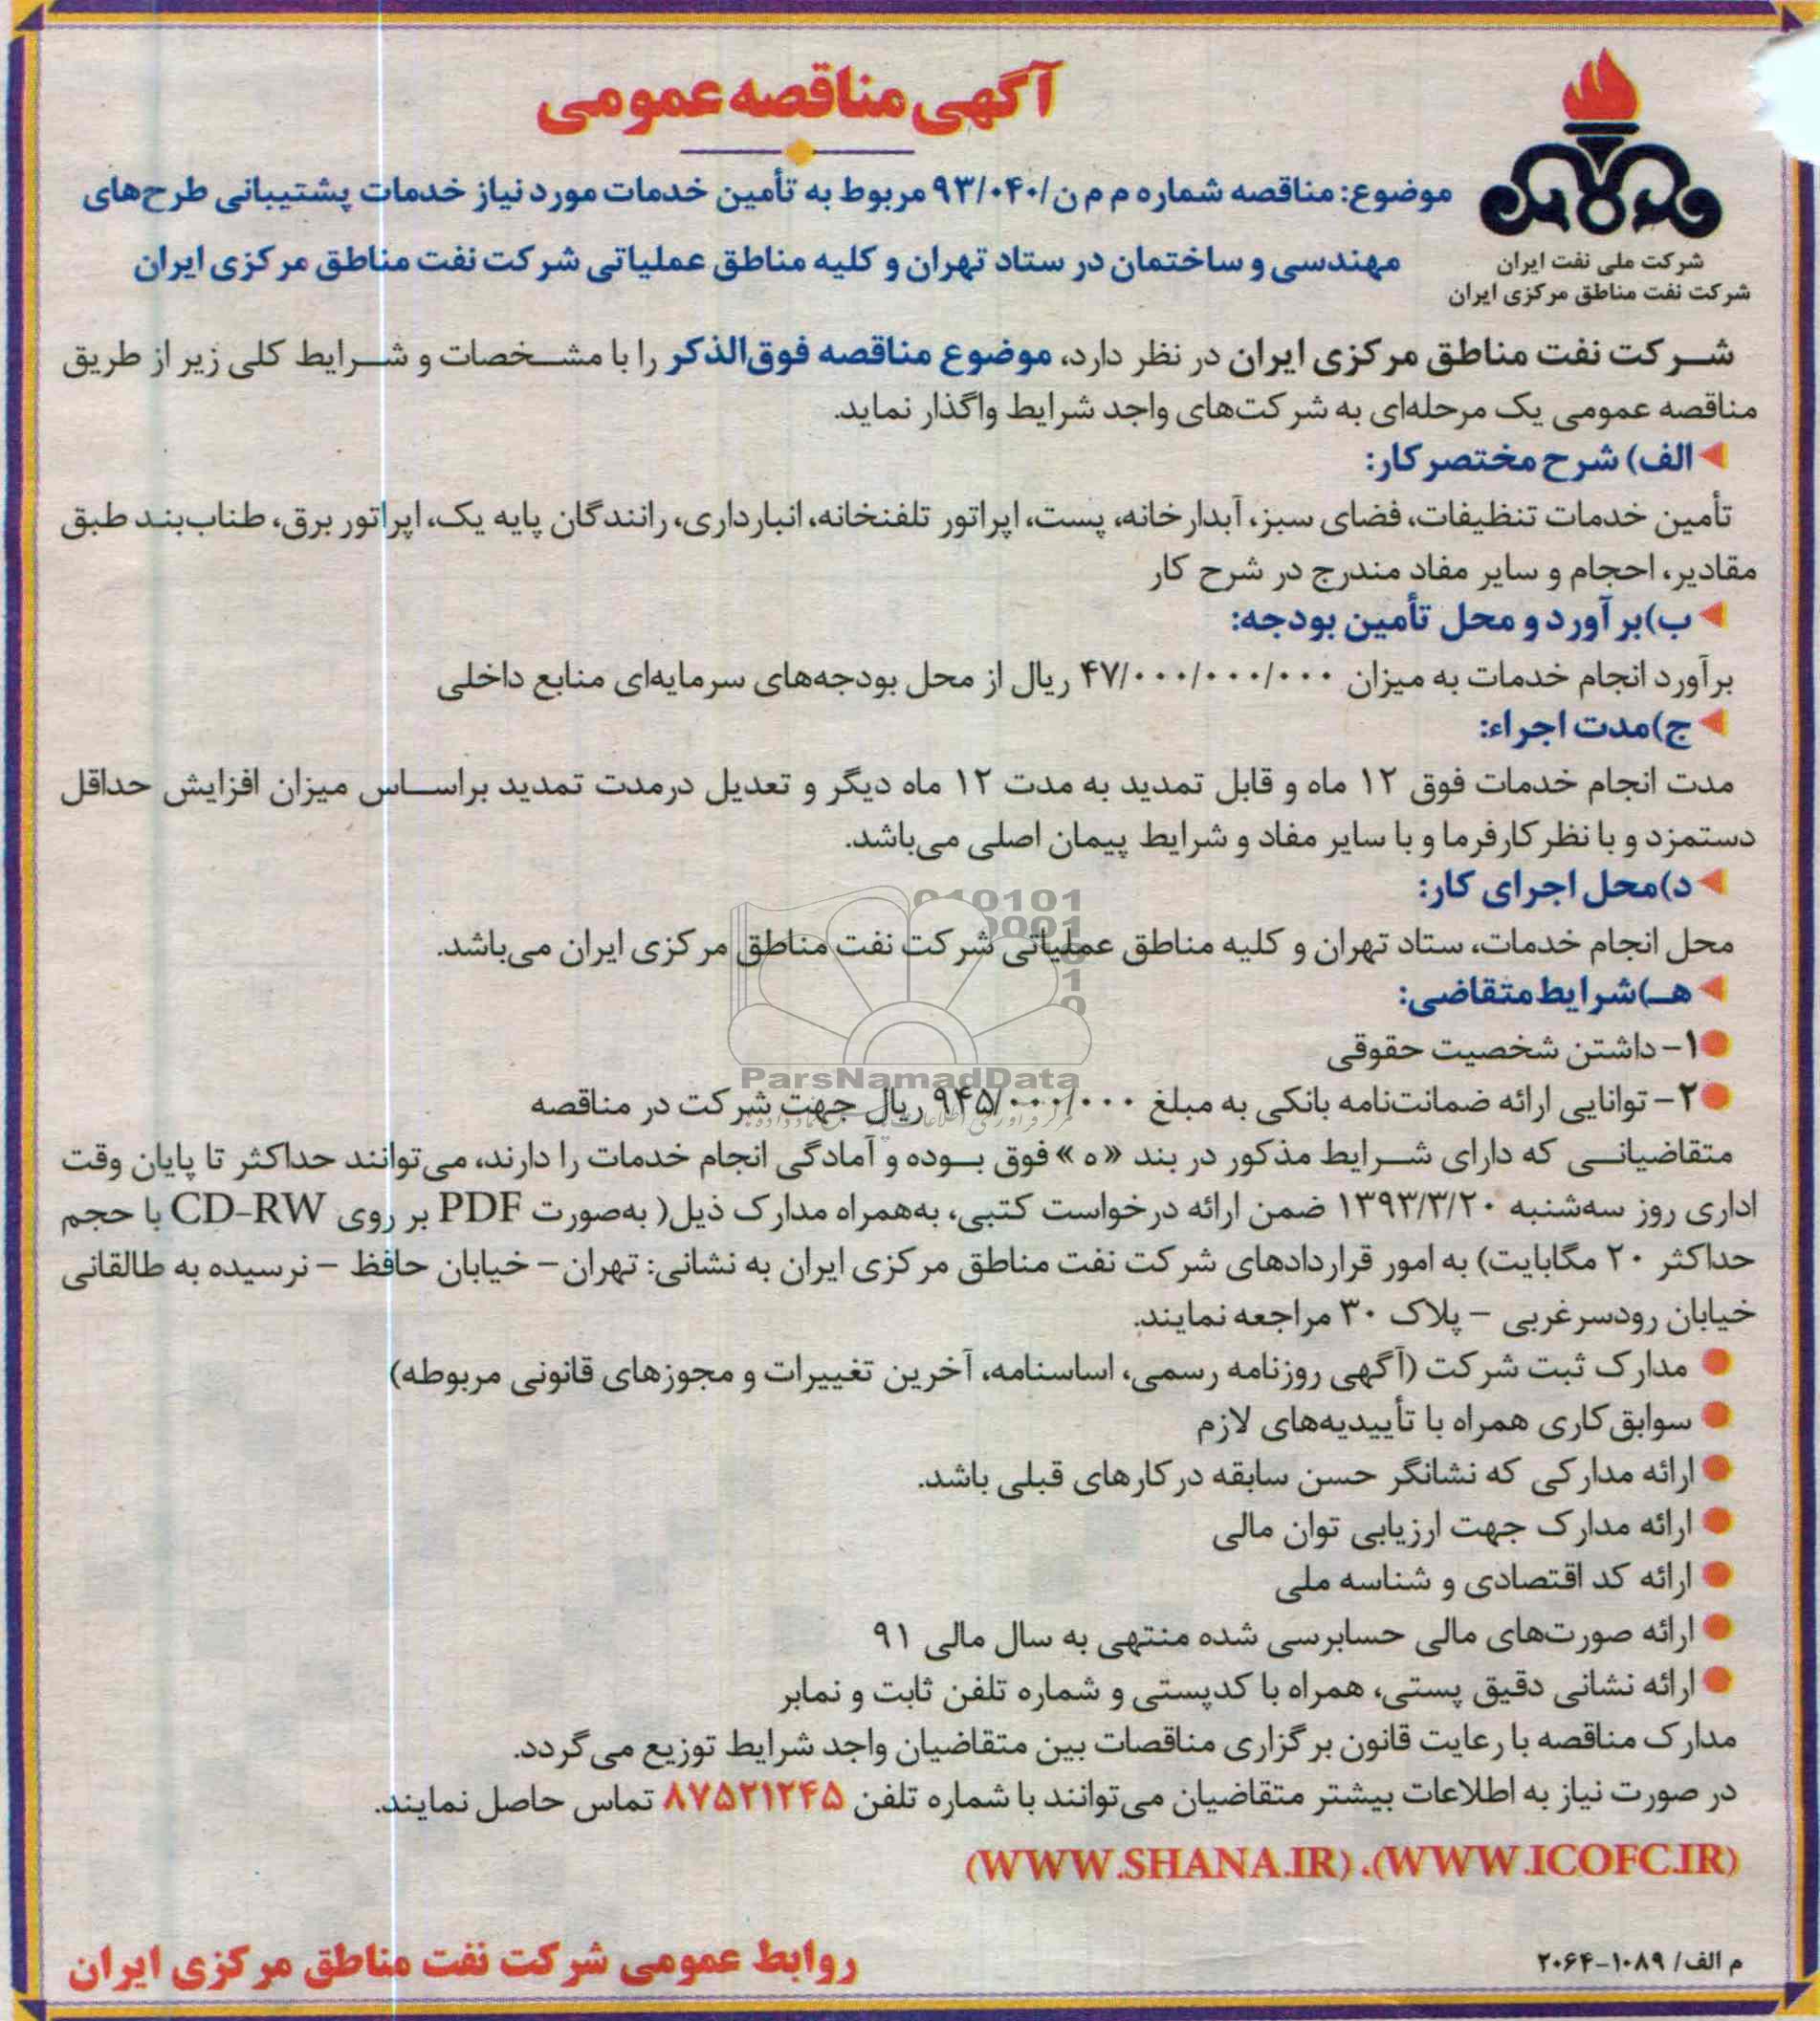 آگهی مناقصه عمومی
شرکت ملی نفت ایران
شرکت نفت مناطق مرکزی ایران
موضوع: مناقصه شماره م م ن/۹۳/۰۴۰ مربوط به تأمین خدمات مورد نیاز خدمات پشتیبانی طرح‌های
مهندسی و ساختمان در ستاد تهران و کلیه مناطق عملیاتی شرکت نفت مناطق مرکزی ایران
شرکت نفت مناطق مرکزی ایران در نظر دارد، موضوع مناقصه فوق‌الذکر را با مشخصات و شرایط کلی زیر از طریق
مناقصه عمومی یک مرحله‌ای به شرکت‌های واجد شرایط واگذار نماید.
الف) شرح مختصر کار:
تأمین خدمات تنظیفات، فضای سبز، آبدارخانه، پست، اپراتور تلفنخانه، انبارداری، رانندگان پایه یک، اپراتور برق، طناب‌بند طبق
مقادیر، احجام و سایر مفاد مندرج در شرح کار
ب) برآورد و محل تأمین بودجه:
برآورد انجام خدمات به میزان ۴۷/۰۰۰/۰۰۰/۰۰۰ ریال از محل بودجه‌های سرمایه‌ای منابع داخلی
ج) مدت اجراء:
مدت انجام خدمات فوق ۱۲ ماه و قابل تمدید به مدت ۱۲ ماه دیگر و تعدیل درمدت تمدید براساس میزان افزایش حداقل
دستمزد و با نظر کارفرما و با سایر مفاد و شرایط پیمان اصلی می‌باشد.
د) محل اجرای کار:
محل انجام خدمات، ستاد تهران و کلیه مناطق عملیاتی شرکت نفت مناطق مرکزی ایران می‌باشد.
هـ) شرایط متقاضی:
۱- داشتن شخصیت حقوقی
ParsNamadData
۲- توانایی ارائه ضمانت‌نامه بانکی به مبلغ ۹۴۵/۰۰۰/۰۰۰ ریال جهت شرکت در مناقصه
متقاضیانی که دارای شرایط مذکور در بند «ه» فوق بوده و آمادگی انجام خدمات را دارند، می‌توانند حداکثر تا پایان وقت
اداری روز سه‌شنبه ۱۳۹۳/۳/۲۰ ضمن ارائه درخواست کتبی، به‌همراه مدارک ذیل( به‌صورت PDF بر روی CD-RW با حجم
حداکثر ۲۰ مگابایت) به امور قراردادهای شرکت نفت مناطق مرکزی ایران به نشانی: تهران- خیابان حافظ - نرسیده به طالقانی
خیابان رودسر غربی - پلاک ۳۰ مراجعه نمایند.
● مدارک ثبت شرکت (آگهی روزنامه رسمی، اساسنامه، آخرین تغییرات و مجوزهای قانونی مربوطه)
● سوابق کاری همراه با تأییدیه‌های لازم
● ارائه مدارکی که نشانگر حسن سابقه در کارهای قبلی باشد.
● ارائه مدارک جهت ارزیابی توان مالی
● ارائه کد اقتصادی و شناسه ملی
● ارائه صورت‌های مالی حسابرسی شده منتهی به سال مالی ۹۱
● ارائه نشانی دقیق پستی، همراه با کدپستی و شماره تلفن ثابت و نمابر
مدارک مناقصه با رعایت قانون برگزاری مناقصات بین متقاضیان واجد شرایط توزیع می‌گردد.
در صورت نیاز به اطلاعات بیشتر متقاضیان می‌توانند با شماره تلفن ۸۷۵۲۱۲۴۵ تماس حاصل نمایند.
(WWW.SHANA.IR)، (WWW.ICOFC.IR)
م الف/ ۱۰۸۹-۲۰۶۴
روابط عمومی شرکت نفت مناطق مرکزی ایران